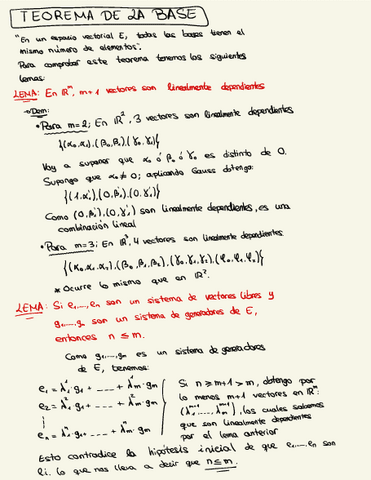 TEOREMA DE LA BASE
"En un espacio vectorial E, todas las bases tienen el
mismo número de elementos".
Para comprobar este teorema tenemos los siguientes
lemas:
LEMA: En ℝᵐ, m+1 vectores son linealmente dependientes
→ Dem:
• Para m=2; En ℝ², 3 vectores son linealmente dependientes
{(α₀,α₁),(β₀,β₁),(γ₀,γ₁)}
Voy a suponer que α₀ ó β₀ ó γ₀ es distinto de 0.
Supongo que α₀ ≠ 0; aplicando Gauss obtengo:
{(1,α₁'),(0,β₁'),(0,γ₁')}
Como (0,β₁'),(0,γ₁') son linealmente dependientes, es una
combinación lineal
• Para m=3: En ℝ³, 4 vectores son linealmente dependientes
{(α₀,α₁,α₂),(β₀,β₁,β₂),(γ₀,γ₁,γ₂),(φ₀,φ₁,φ₂)}
* Ocurre lo mismo que en ℝ².
LEMA: Si e₁,...,eₙ son un sistema de vectores libres y
g₁,...,gₘ son un sistema de generadores de E,
entonces n ≤ m.
Como g₁,...,gₘ es un sistema de generadores
de E, tenemos:
e₁ = λ₁¹·g₁ + --- + λₘ¹·gₘ
e₂ = λ₁²·g₁ + --- + λₘ²·gₘ
⋮
eₙ = λ₁ⁿ·g₁ + --- + λₘⁿ·gₘ
Si n ≥ m+1 > m, obtengo por
lo menos m+1 vectores en ℝᵐ:
(λ₁ᵐ⁺¹,...,λₘᵐ⁺¹), los cuales sabemos
que son linealmente dependientes
por el lema anterior
Esto contradice la hipótesis inicial de que e₁,...,eₙ son
l.i. lo que nos lleva a decir que n ≤ m.